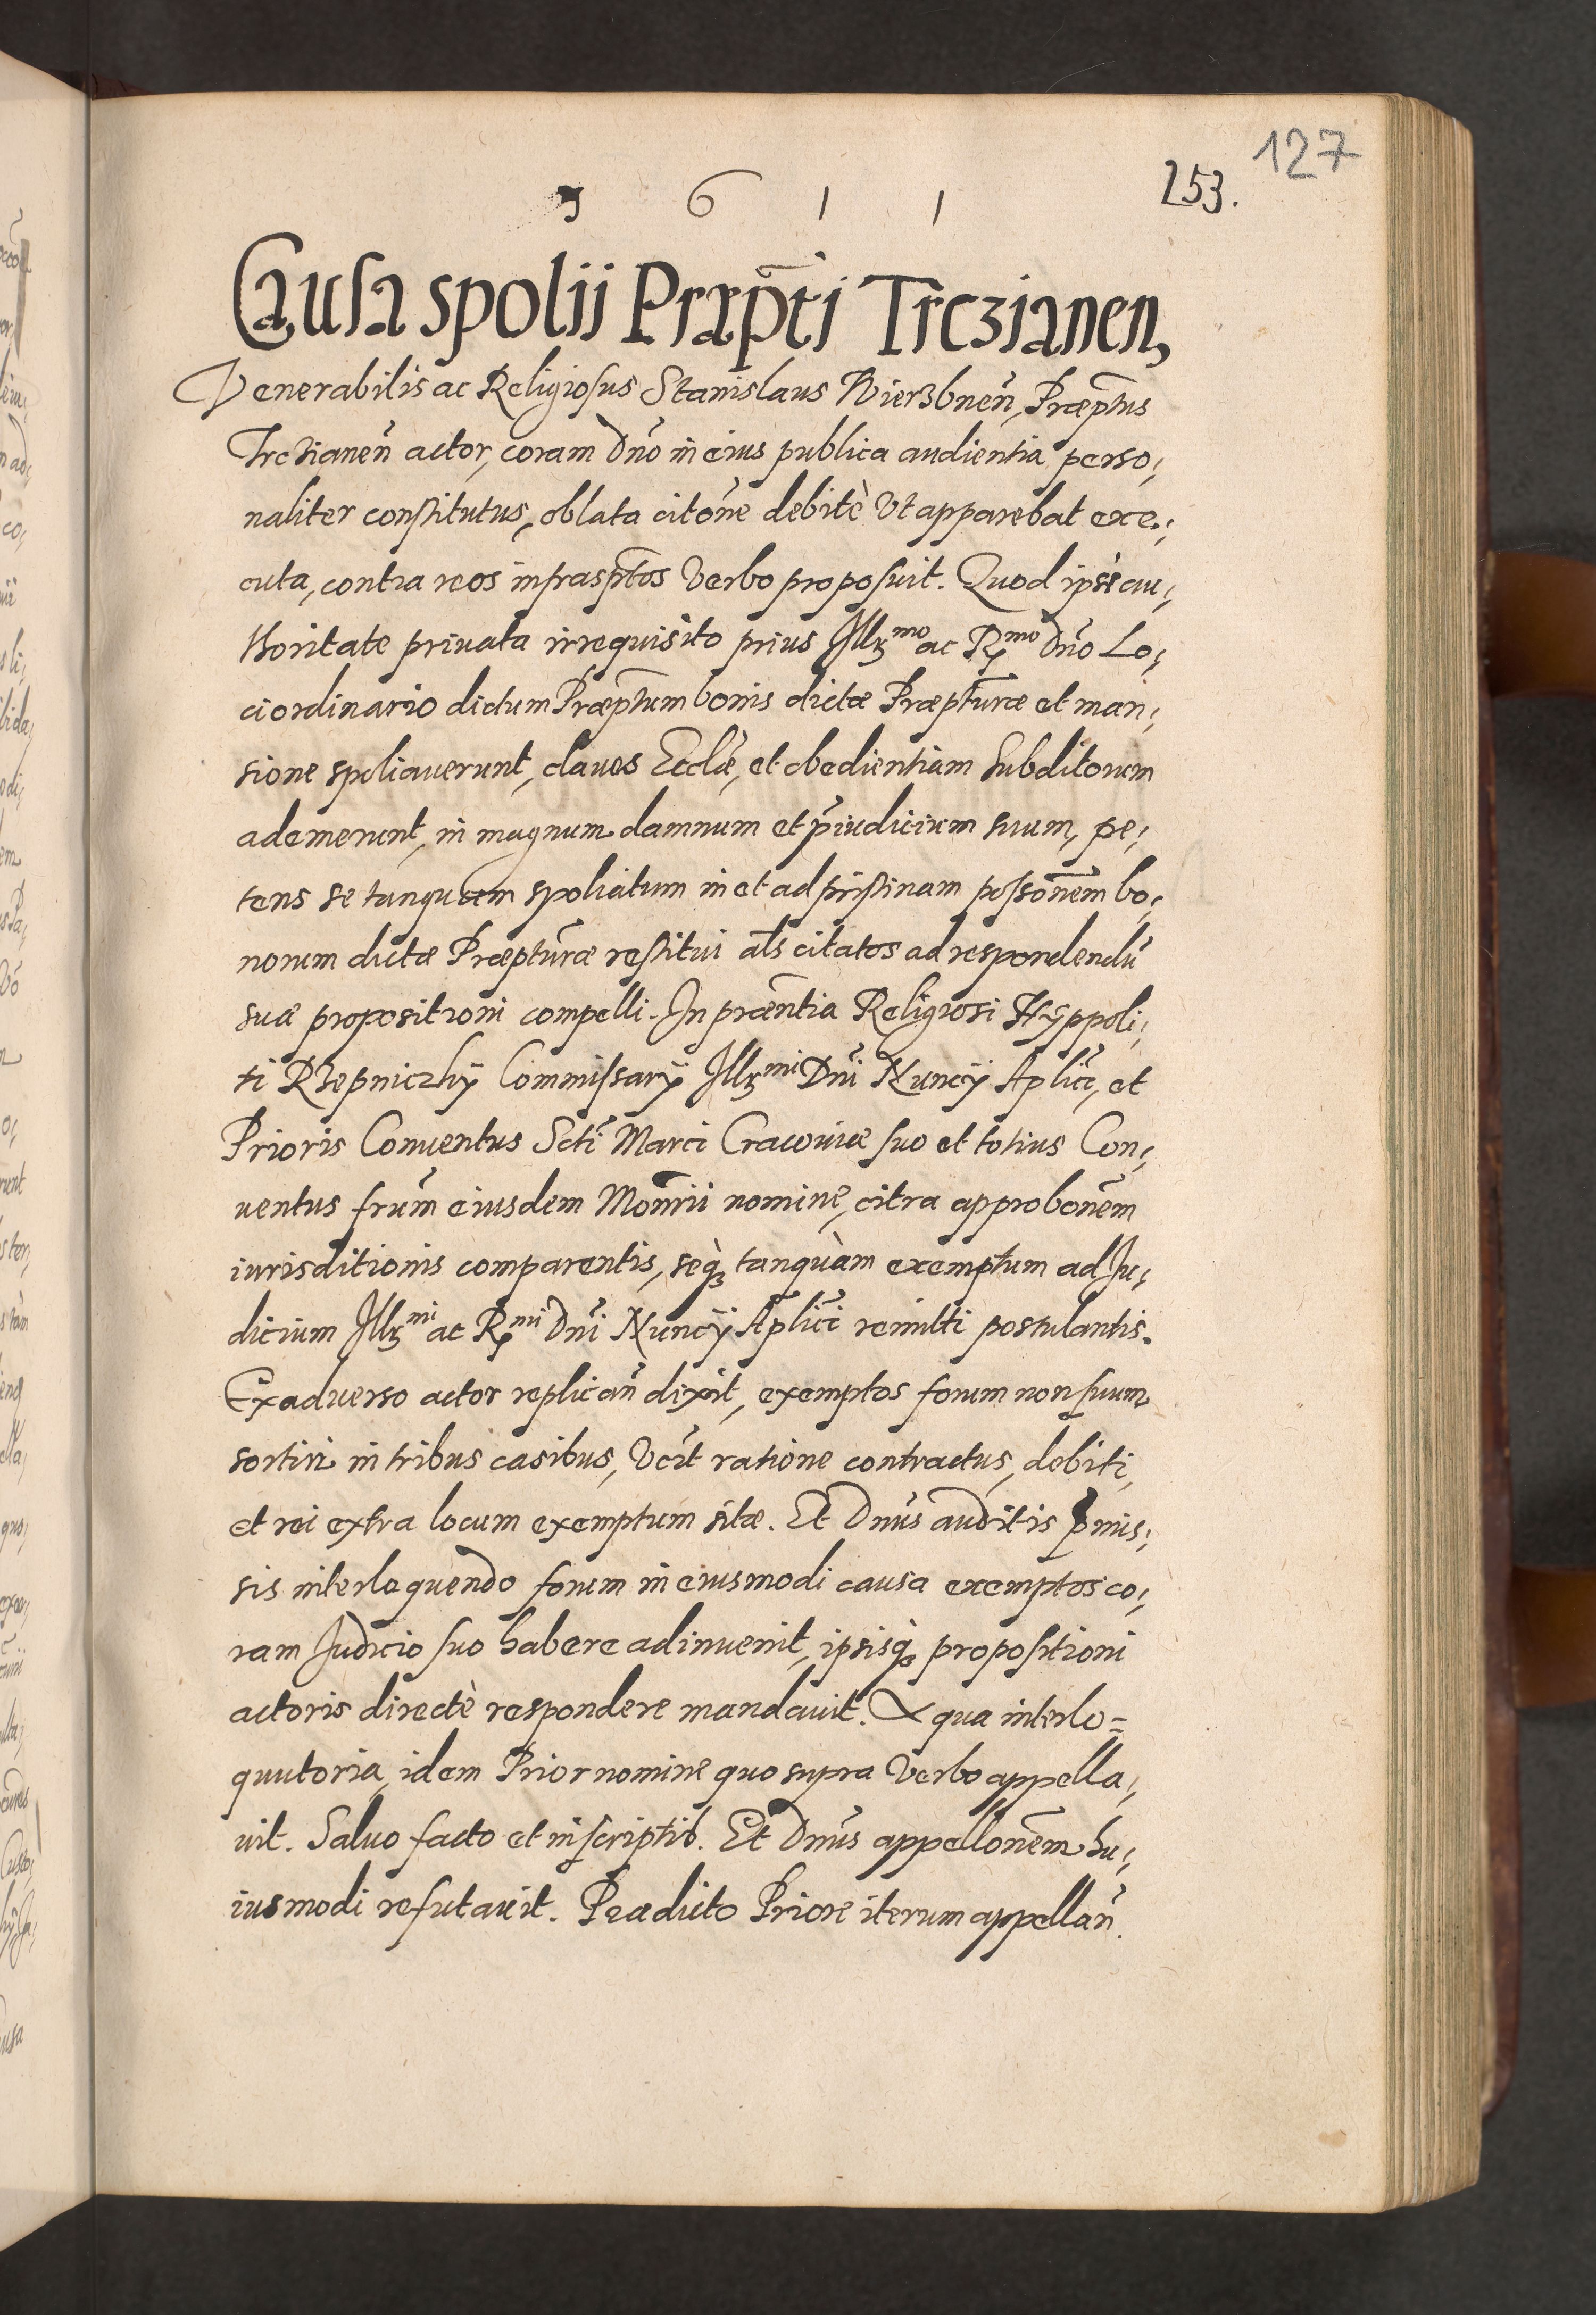 127
253.
1 6 1 1
Causa spolii Præpti Trczianen,
Venerabilis ac Religiosus Stanislaus Wierzbnen̄, Præptus
Trczianen̄ actor, coram Dn̄o in eius publica audientia perso,
naliter constitutus, oblata citōne debitè Vt apparebat exe,
cuta, contra reos infrasp̄tos Verbo proposuit. Quod ipsi au,
thoritate priuata irrequisito prius Illꝫmo ac Rmo Dn̄o Lo,
ci ordinario dictum Præptum bonis dictæ Præpturæ et man,
sione spoliauerunt, claues Eccl̄æ, et obedientiam subditorum
ademerunt, in magnum damnum et p̄iudicium suum, pe,
tens se tanquam spoliatum in et ad pristinam possonēm bo,
norum dictæ Præpturæ restitui al̄s citatos ad respondendū
suæ propositioni compelli. In præntia Religiosi Hyppoli,
ti Rzepniczky Commissarÿ Illꝫmi Dn̄i Nuncÿ Aplici, et
Prioris Conuentus Scti Marci Cracouiæ suo et totius Con,
uentus frūm eiusdem Monrii nomine, citra approbonēm
iurisditionis comparentis, seqꝫ tanquàm exemptum ad Iu,
dicium Illꝫmi ac Rmi Dn̄i Nuncÿ Aplici remitti postulantis.
Ex aduerso actor replican̄ dixit, exemptos forum non suum
sortiri in tribus casibus, Vcīt ratione contractus, debiti,
et rei extra locum exemptum sitæ. Et Dn̄us auditis p̄mis,
sis interloquendo forum in eiusmodi causa exemptos co,
ram Iudicio suo habere adinuenit, ipsisqꝫ propositioni
actoris directè respondere mandauit. A qua interlo=
quutoria, idem Prior nomine quo supra Verbo appella,
uit. Saluo facto et in scriptis. Et Dn̄us appellonēm hu,
iusmodi refutauit. Prædicto Priore iterum appellan̄.